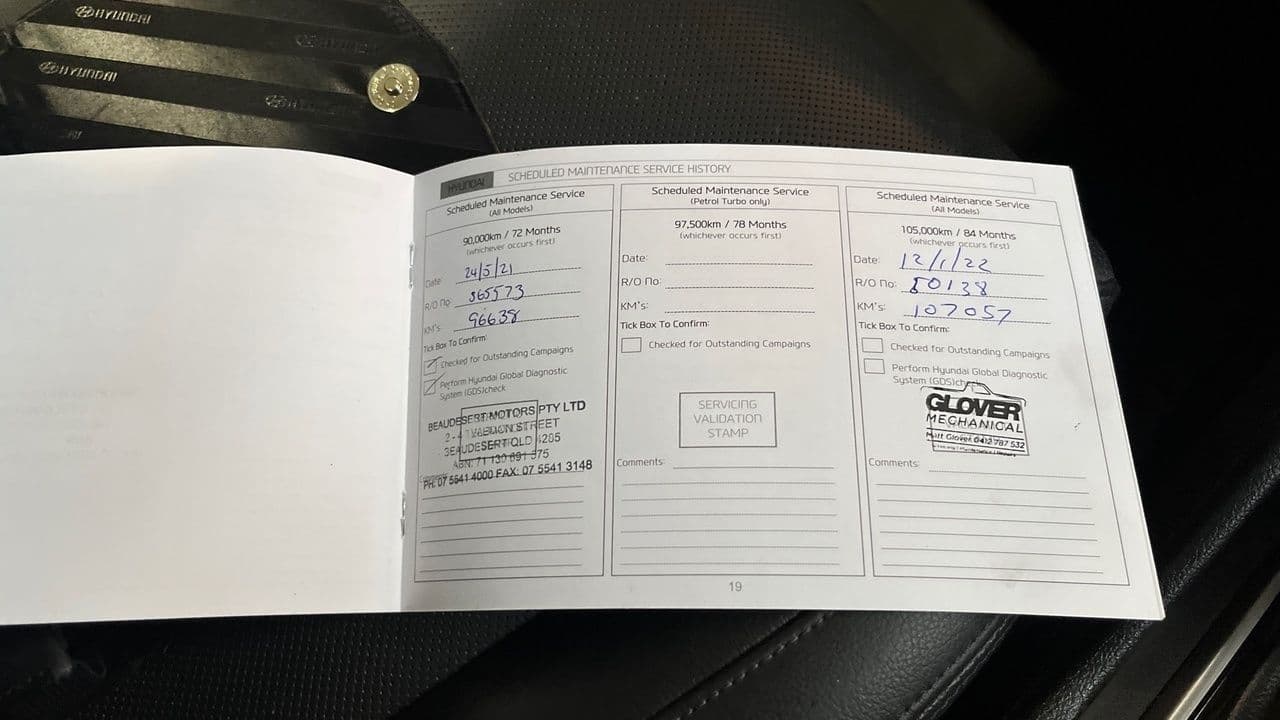 HYUNDAI
HYUNDAI
HYUNDAI SCHEDULED MAINTENANCE SERVICE HISTORY
Scheduled Maintenance Service
(All Models)
90,000km / 72 Months
(whichever occurs first)
Date: 24/5/21
R/O No: 365573
KM's: 96638
Tick Box To Confirm:
Checked for Outstanding Campaigns
Perform Hyundai Global Diagnostic
System (GDS)check
BEAUDESERT MOTORS PTY LTD
STREET
BEAUDESERT QLD 4285
ABN: 71 130 691 575
PH: 07 5541 4000 FAX: 07 5541 3148
Scheduled Maintenance Service
(Petrol Turbo only)
97,500km / 78 Months
(whichever occurs first)
Date:
R/O No:
KM's:
Tick Box To Confirm:
Checked for Outstanding Campaigns
SERVICING
VALIDATION
STAMP
Comments:
Scheduled Maintenance Service
(All Models)
105,000km / 84 Months
(whichever occurs first)
Date: 12/1/22
R/O No: 50138
KM's: 107057
Tick Box To Confirm:
Checked for Outstanding Campaigns
Perform Hyundai Global Diagnostic
System (GDS)check
GLOVER
MECHANICAL
Matt Glover 0412 787 532
Comments:
19